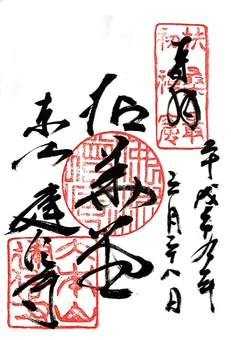 扶桑最初禅窟
奉拝
平成廿九年
三月二十八日
拈華堂
東山
建仁寺